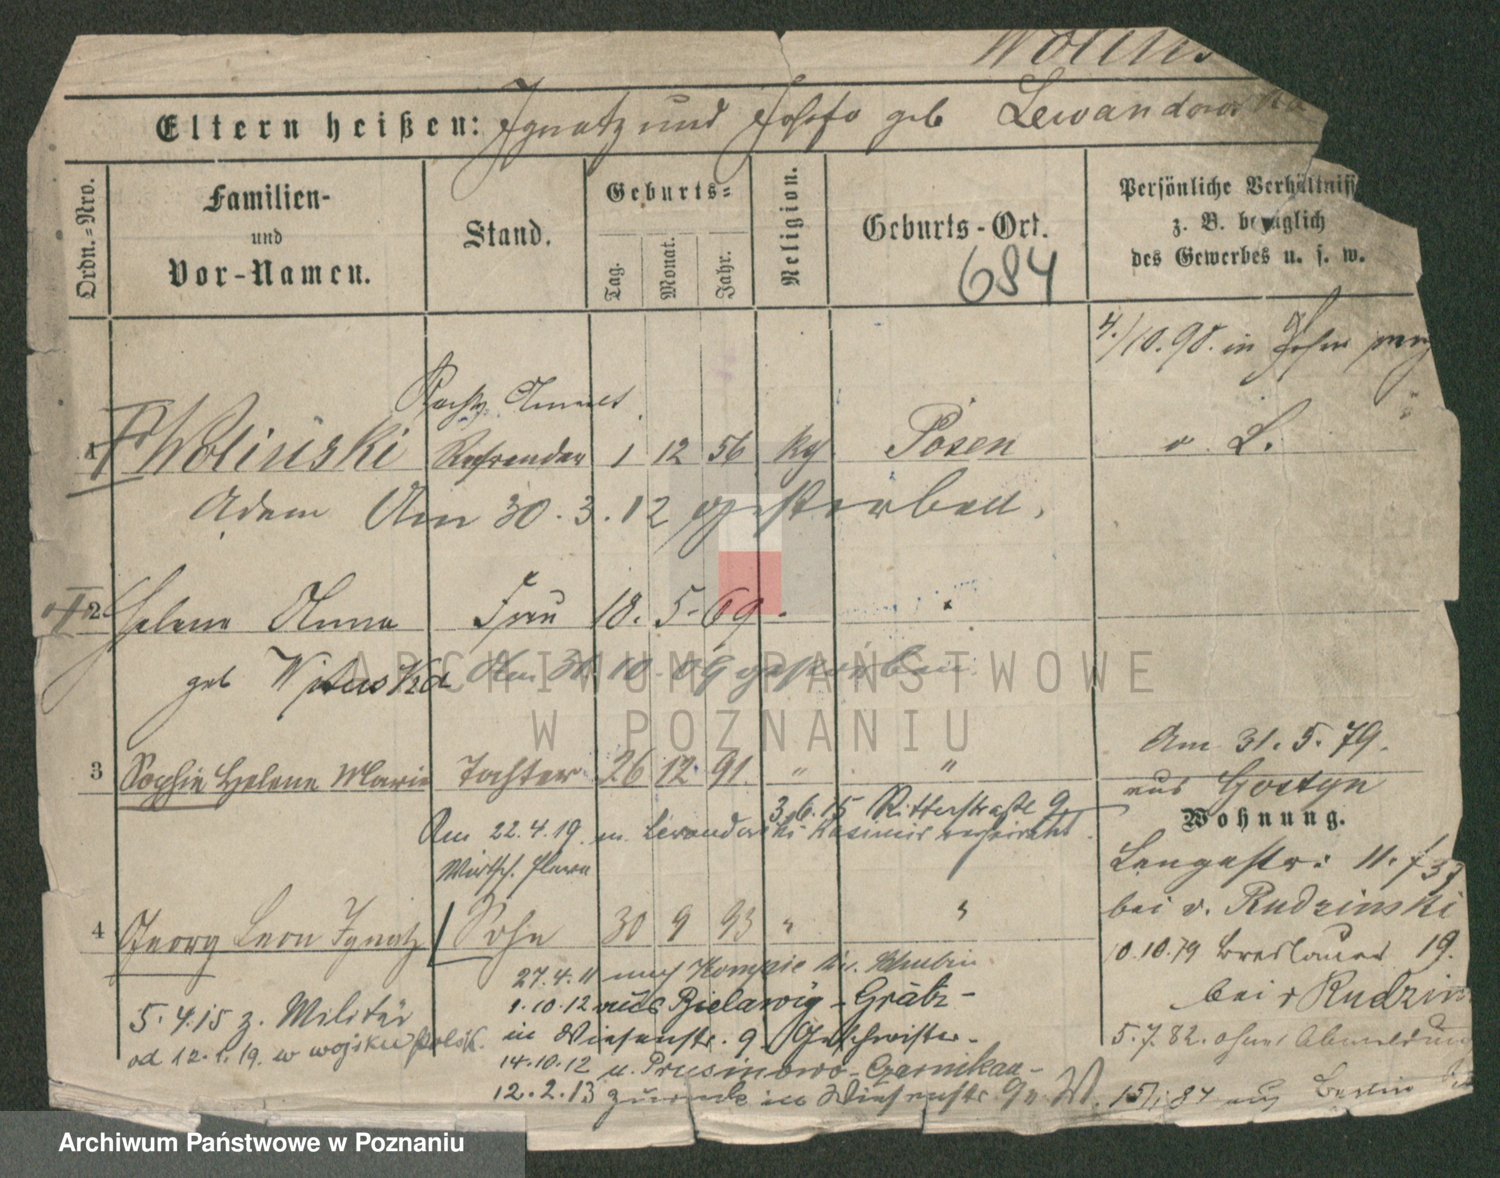 Wolins
Eltern heißen: Ignatz und Josefa geb Lewandowska
Ordn.=Nro.
Familien-
und
Vor-Namen.
Stand.
Geburts=
Tag.
Monat.
Jahr.
Religion.
Geburts-Ort.
684
Persönliche Verhältniss
z. B. bezüglich
des Gewerbes u. s. w.
4./10.90. in
1 Woliński Referendar 1 12 56 kg Posen v. L.
Adam Am 30.3.12 gestorben.
2 Helene Anna Frau 18. 5. 69.
geb Am 31.10.09 gestorben
3 Sophie Helene Marie Tochter 26 12 91. " "
Am 31.5.79.
aus Gostyn
3.6.15 Ritterstraße 9
Am 22.4.19 m. Lewandowski Kasimir verheirathet.
Wohnung.
Langestr: 11.
bei v. Rudzinski
4 Georg Leon Ignatz Sohn 30 9 93 " "
10.10.79 Breslauer 19.
bei v Rudzin
27.4.11 nach
1.10.12 aus Bielawy-Grätz-
in Wiesenstr. 9 Geschwister-
14.10.12 n. Prusinowo-Czarnikau-
12.2.13 zurück in Wiesenstr. 9
5.4.15 z. Militär
od 12.1.19. w wojsku polsk.
5.7.82. ohne Abmeldung
15/1 84 aus Berlin
ARCHIWUM PAŃSTWOWE
W POZNANIU
Archiwum Państwowe w Poznaniu